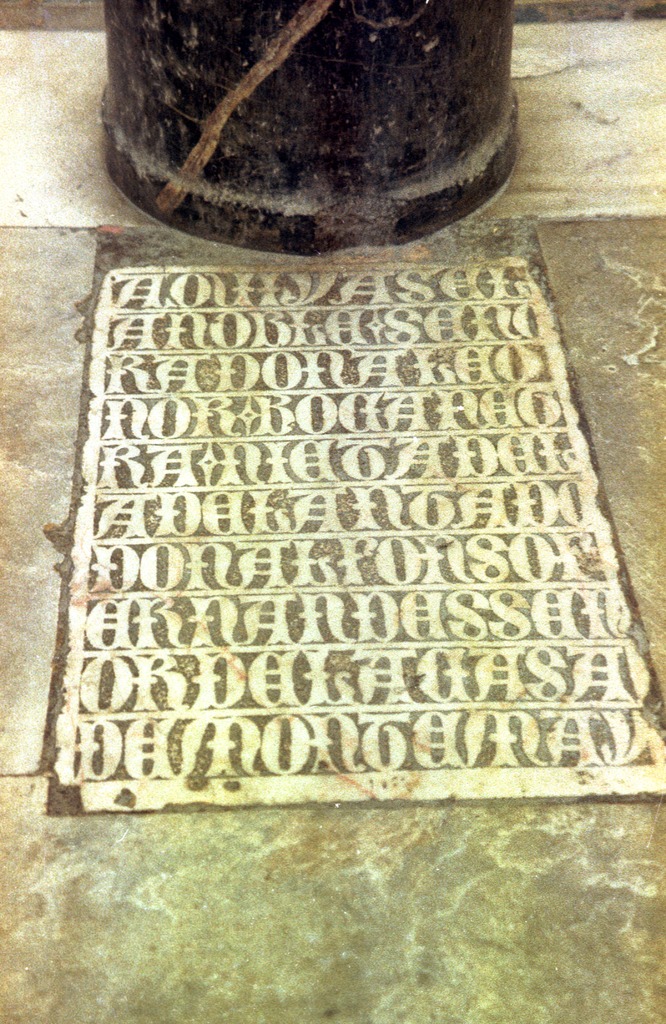 AQUI YASE L
A NOBLE SENO
RA DONA LEO
NOR BOCANEG
RA NIETA DEL
ADELANTADO
DON ALFONSO F
ERNANDES SEN
OR DE LA CASA
DE MONTEMAY